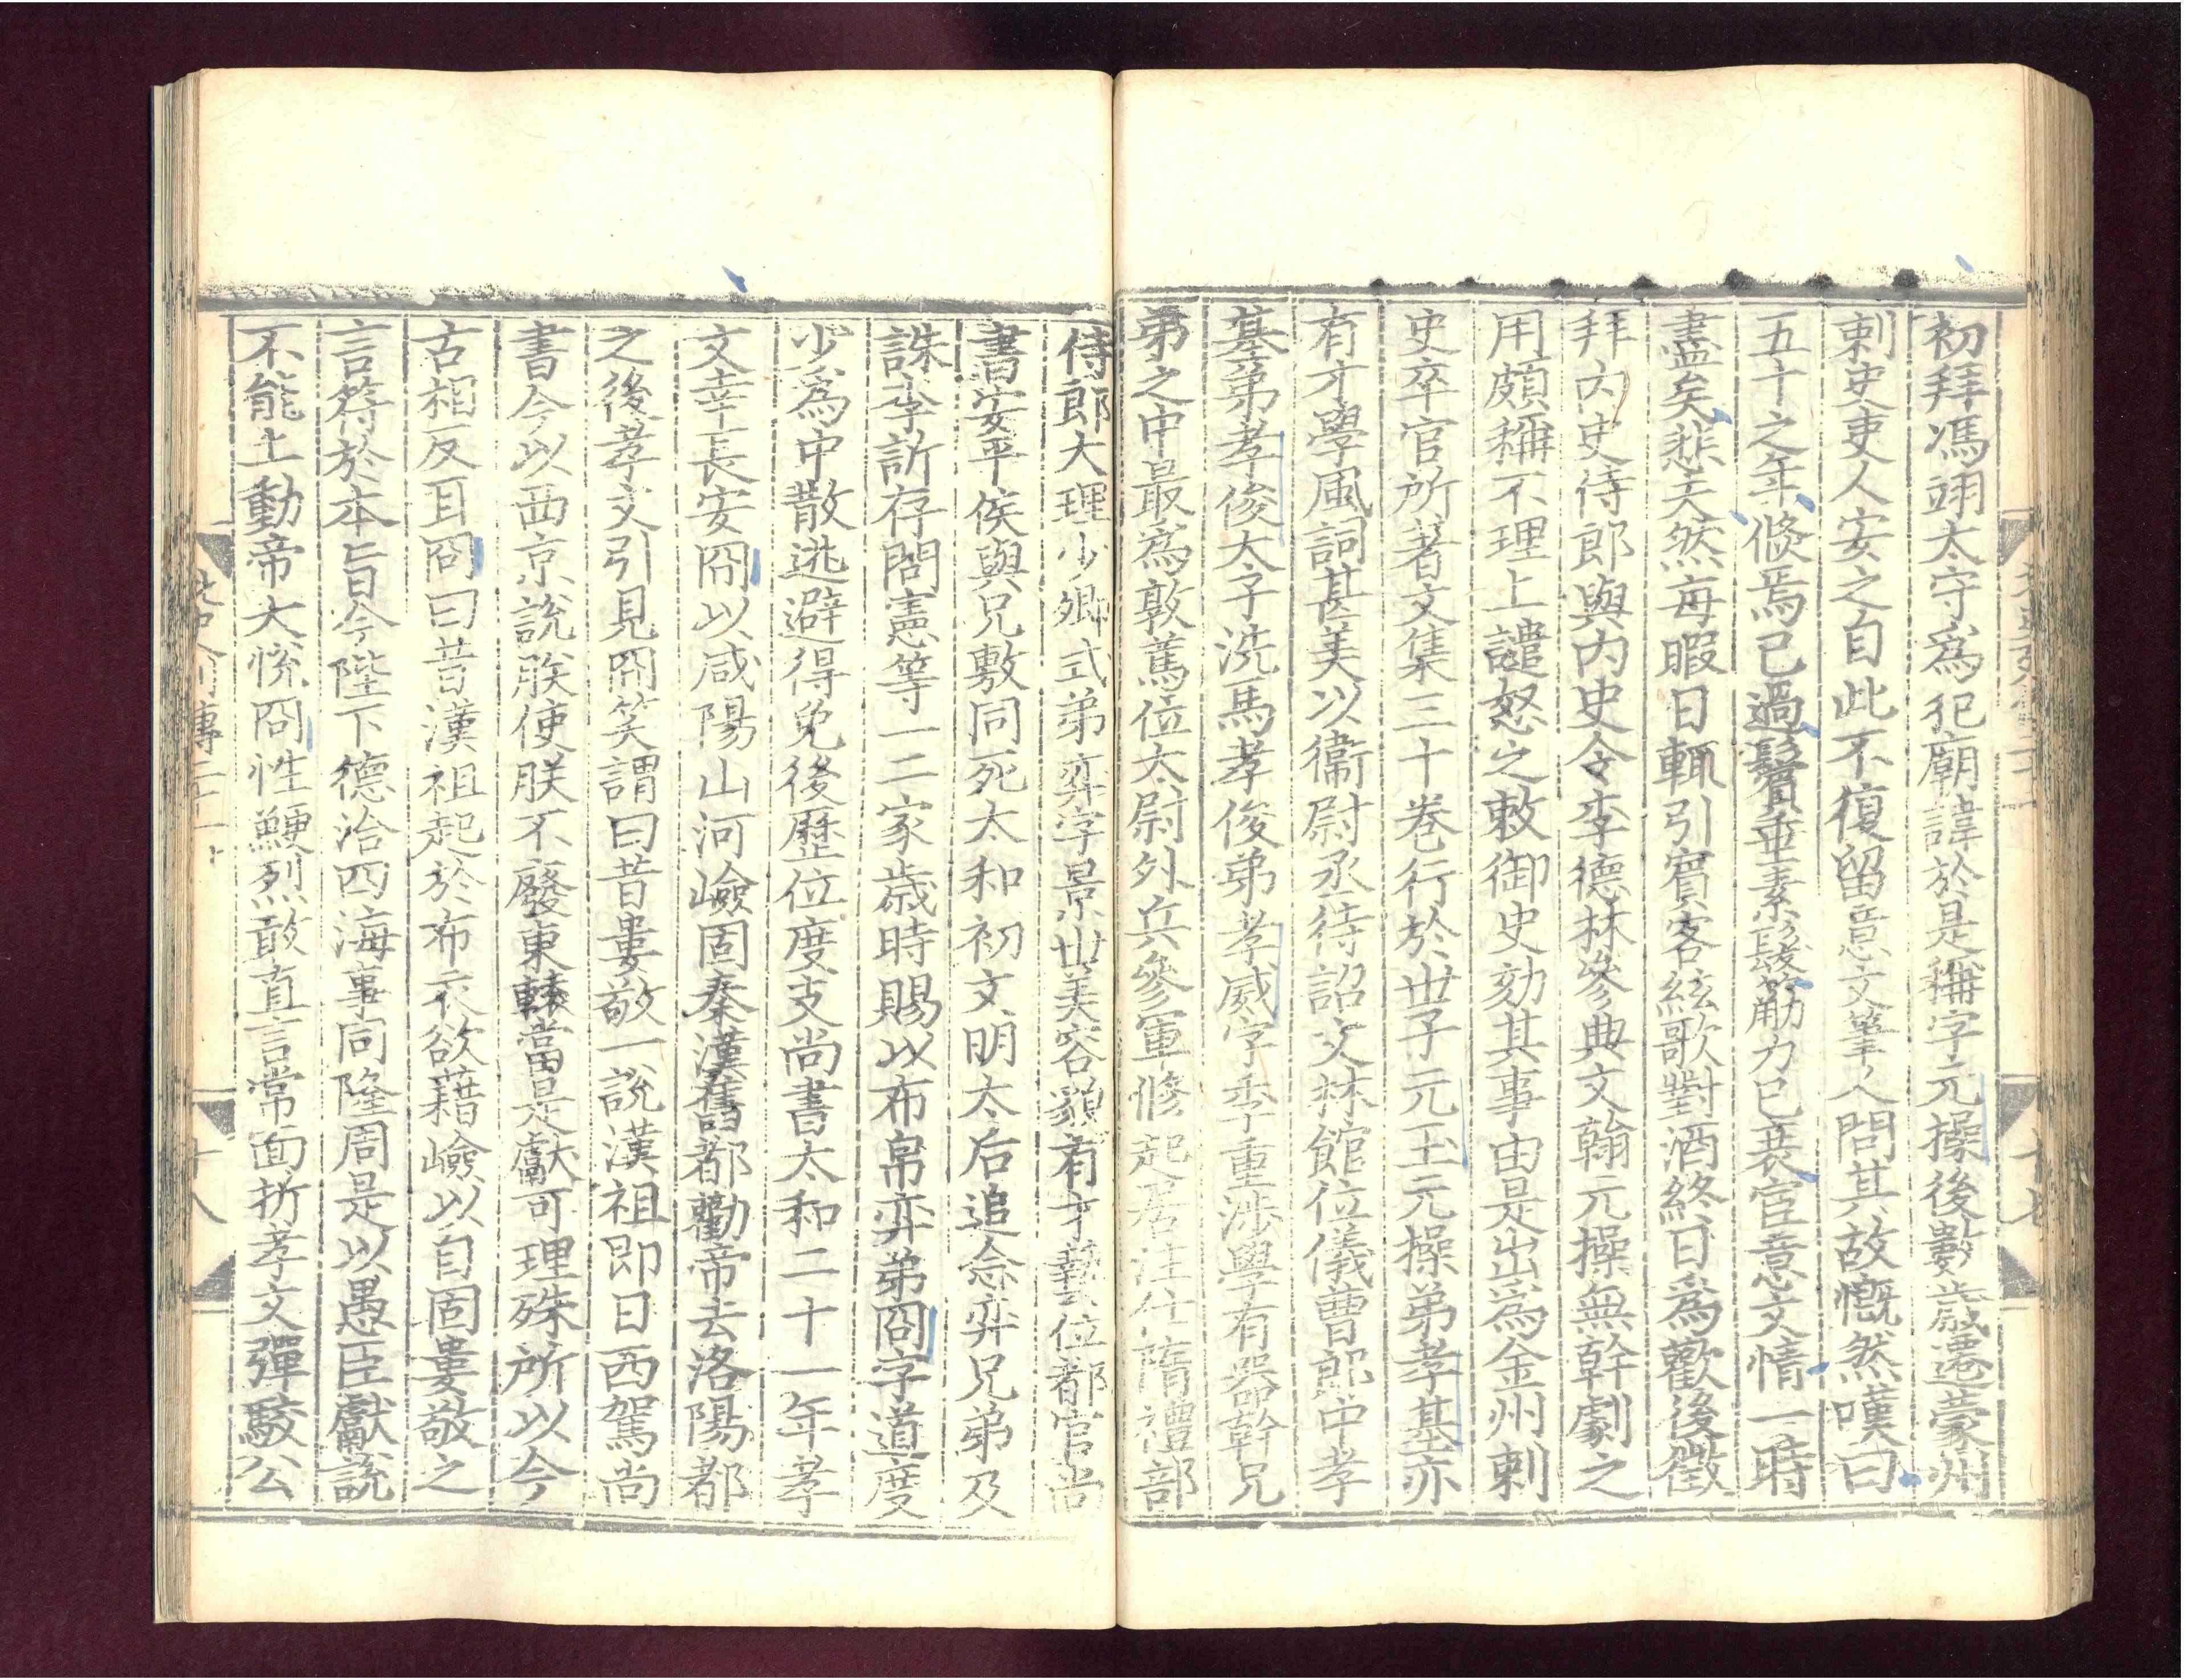 初拜馮翊太守爲犯廟諱於是稱字元操後數歲遷蒙州
剌史吏人安之自此不復留意文筆人問其故慨然嘆曰
五十之年倐焉已過鬢垂素髮筋力已衰宦意文情一時
盡矣悲夫然毎暇日輒引賓客絃歌對酒終日爲歡後徵
拜內史侍郎與內史令李德林參典文翰元操無幹劇之
用頗稱不理上譴怒之敕御史劾其事由是出爲金州剌
史卒官所著文集三十卷行於世子元玉元操弟孝基亦
有才學風詞甚美以衞尉丞待詔文林館位儀曹郎中孝
基弟孝俊太子洗馬孝俊弟孝威字季重涉學有器幹兄
弟之中最爲敦篤位太尉外兵參軍修起居注仕隋禮部
侍郎大理少卿式弟弈字景世美容貌有才藝位都官尚
書安平侯與兄敷同死太和初文明太后追念弈兄弟及
誅李訢存問憲等一二家歲時賜以布帛弈弟冏字道度
少爲中散逃避得免後歷位度支尚書太和二十一年孝
文幸長安冏以咸陽山河嶮固秦漢舊都勸帝去洛陽都
之後孝文引見冏笑謂曰昔婁敬一說漢祖即日西駕尚
書今以西京說朕使朕不廢東轅當是獻可理殊所以今
古相反耳冏曰昔漢祖起於布衣欲藉嶮以自固婁敬之
言符於本旨今陛下德洽四海事同隆周是以愚臣獻說
不能上動帝大悅冏性鯁烈敢直言常面折孝文彈駮公
北史列傳二十一
十七
十八